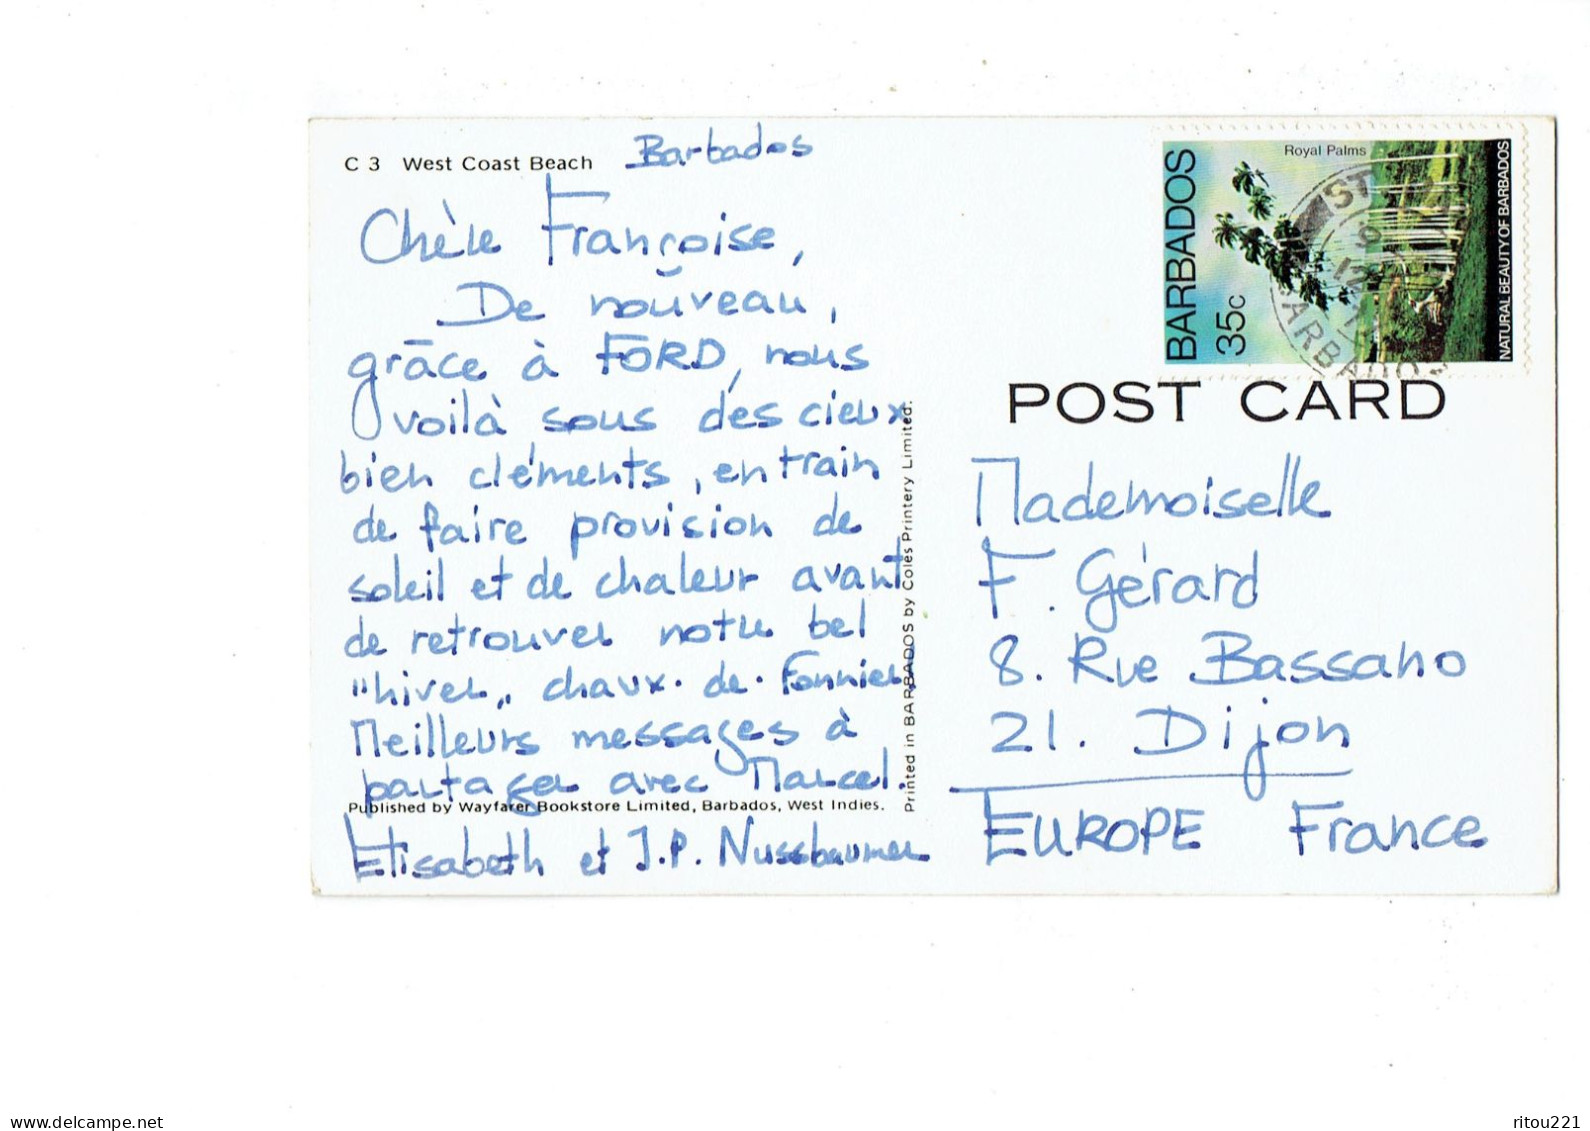 C 3 West Coast Beach Barbados
Chère Françoise,
De nouveau,
grâce à FORD, nous
voilà sous des cieux
bien cléments, en train
de faire provision de
soleil et de chaleur avant
de retrouver notre bel
"hiver„ chaux-de-Fonnier,
Meilleurs messages à
partager avec Marcel.
Published by Wayfarer Bookstore Limited, Barbados, West Indies.
Elisabeth et J.P. Nussbaumer
Printed in BARBADOS by Coles Printery Limited.
BARBADOS
35c
Royal Palms
NATURAL BEAUTY OF BARBADOS
POST CARD
Mademoiselle
F. Gérard
8. Rue Bassano
21. Dijon
EUROPE France
www.delcampe.net
ritou221